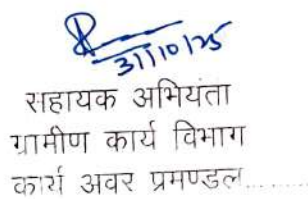 31/10/25
सहायक अभियंता
ग्रामीण कार्य विभाग
कार्य अवर प्रमण्डल.........